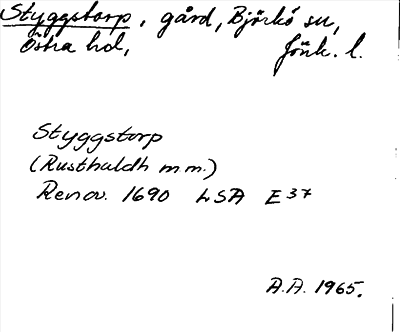 Styggstorp, gård, Björkö sn,
Östra hd, Jönk. l.
Styggstorp
(Rusthåldh m.m.)
Renov. 1690 LSA E37
A.A. 1965.